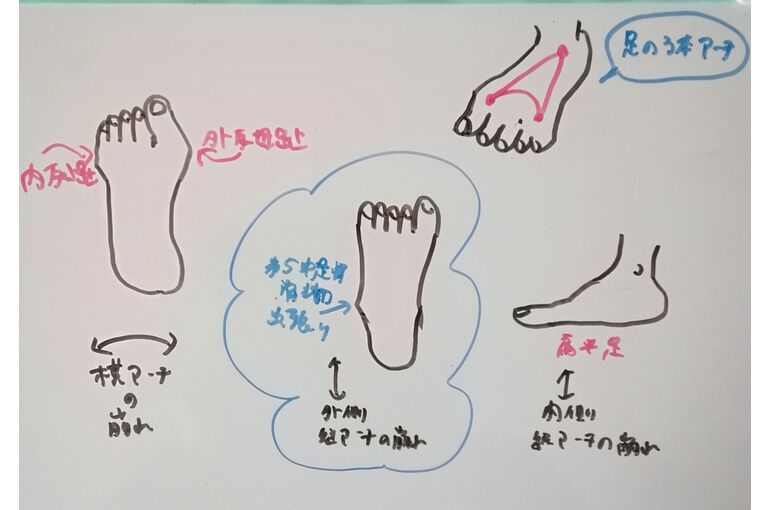 足の3本アーチ
外反母趾
内反小趾
第5中足骨
出張り
扁平足
横アーチ
の
崩れ
外側
縦アーチの崩れ
内側
縦アーチの崩れ